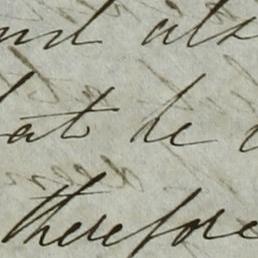 and als
hat he
therefore